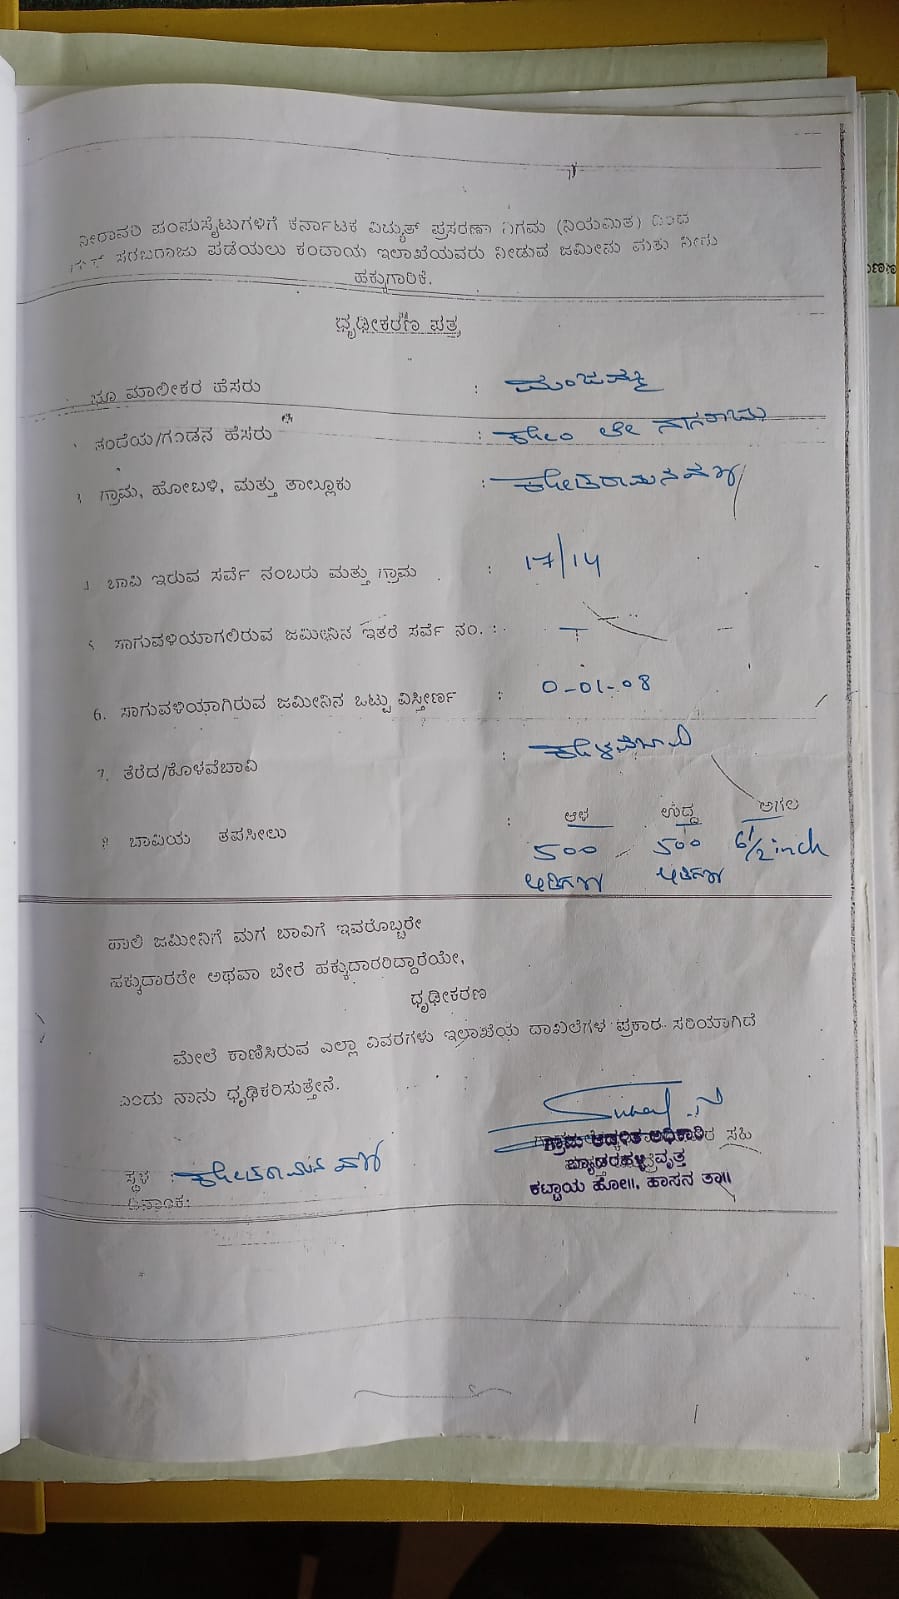 ನೀರಾವರಿ ಪಂಪುಸೆಟುಗಳಿಗೆ ಕರ್ನಾಟಕ ವಿದ್ಯುತ್ ಪ್ರಸರಣಾ ನಿಗಮ (ನಿಯಮಿತ)
ಸರಬರಾಜು ಪಡೆಯಲು ಕಂದಾಯ ಇಲಾಖೆಯವರು ನೀಡುವ ಜಮೀನು ಮತ್ತು ನೀರು
ಹಕ್ಕುಗಾರಿಕೆ.
ಧೃಢೀಕರಣ ಪತ್ರ
ಭೂ ಮಾಲೀಕರ ಹೆಸರು : ಮಂಜಮ್ಮ
ತಂದೆಯ/ಗಂಡನ ಹೆಸರು : ಕೋಂ ಲೇ ನಾಗರಾಜು
ಗ್ರಾಮ, ಹೋಬಳಿ, ಮತ್ತು ತಾಲ್ಲೂಕು :
ಬಾವಿ ಇರುವ ಸರ್ವೆ ನಂಬರು ಮತ್ತು ಗ್ರಾಮ : 17/14
5. ಸಾಗುವಳಿಯಾಗಲಿರುವ ಜಮೀನಿನ ಇತರೆ ಸರ್ವೆ ನಂ. : —
6. ಸಾಗುವಳಿಯಾಗಿರುವ ಜಮೀನಿನ ಒಟ್ಟು ವಿಸ್ತೀರ್ಣ : 0-01-08
7. ತೆರೆದ/ಕೊಳವೆಬಾವಿ : ಕೊಳವೆಬಾವಿ
8 ಬಾವಿಯ ತಪಸೀಲು : ಆಳ ಉದ್ದ ಅಗಲ
500 500 6 1/2 inch
ಹಾಲಿ ಜಮೀನಿಗೆ ಮಗ ಬಾವಿಗೆ ಇವರೊಬ್ಬರೇ
ಹಕ್ಕುದಾರರೇ ಅಥವಾ ಬೇರೆ ಹಕ್ಕುದಾರರಿದ್ದಾರೆಯೇ,
ಧೃಢೀಕರಣ
ಮೇಲೆ ಕಾಣಿಸಿರುವ ಎಲ್ಲಾ ವಿವರಗಳು ಇಲಾಖೆಯ ದಾಖಲೆಗಳ ಪ್ರಕಾರ ಸರಿಯಾಗಿದೆ
ಎಂದು ನಾನು ಧೃಢಿಕರಿಸುತ್ತೇನೆ.
ಗ್ರಾಮ ಆಡಳಿತ ಅಧಿಕಾರಿ ಸಹಿ
ವೃತ್ತ
ಸ್ಥಳ :
ಕಟ್ಟಾಯ ಹೋ||, ಹಾಸನ ತಾ||
ದಿನಾಂಕ: